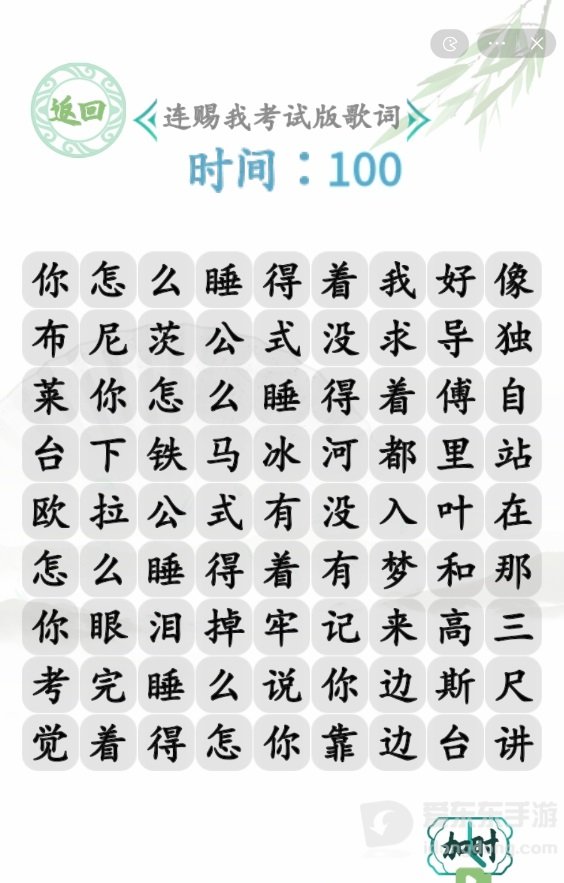 返回
连赐我考试版歌词
时间：100
你怎么睡得着我好像
布尼茨公式没求导独
莱你怎么睡得着傅自
台下铁马冰河都里站
欧拉公式有没入叶在
怎么睡得着有梦和那
你眼泪掉牢记来高三
考完睡么说你边斯尺
觉着得怎你靠边台讲
爱东东手游
加时